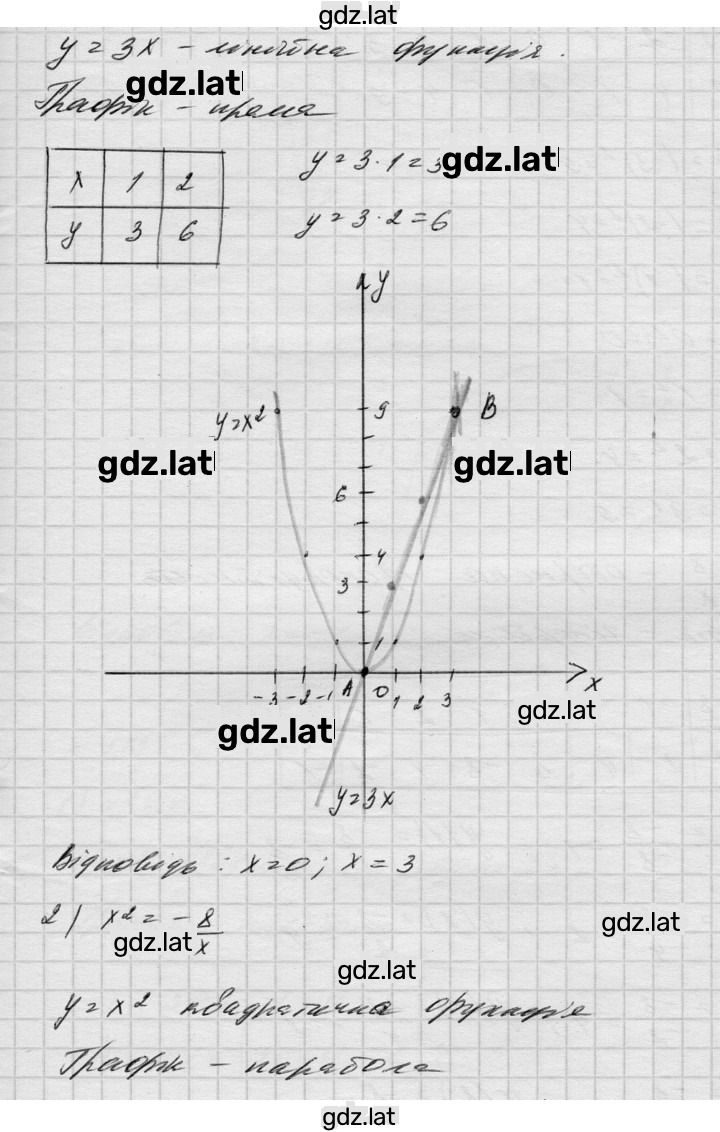 gdz.lat
y = 3x – лінійна функція.
gdz.lat
Графік – пряма
x 1 2
y 3 6
y = 3 · 1 = 3
gdz.lat
y = 3 · 2 = 6
y
y=x²
9
B
gdz.lat
gdz.lat
6
4
3
1
-3 -2 -1 A 0 1 2 3 x
gdz.lat
gdz.lat
y=3x
Відповідь: x=0; x = 3
2) x² = - 8/x
gdz.lat
gdz.lat
gdz.lat
y = x² квадратична функція
Графік – парабола
gdz.lat